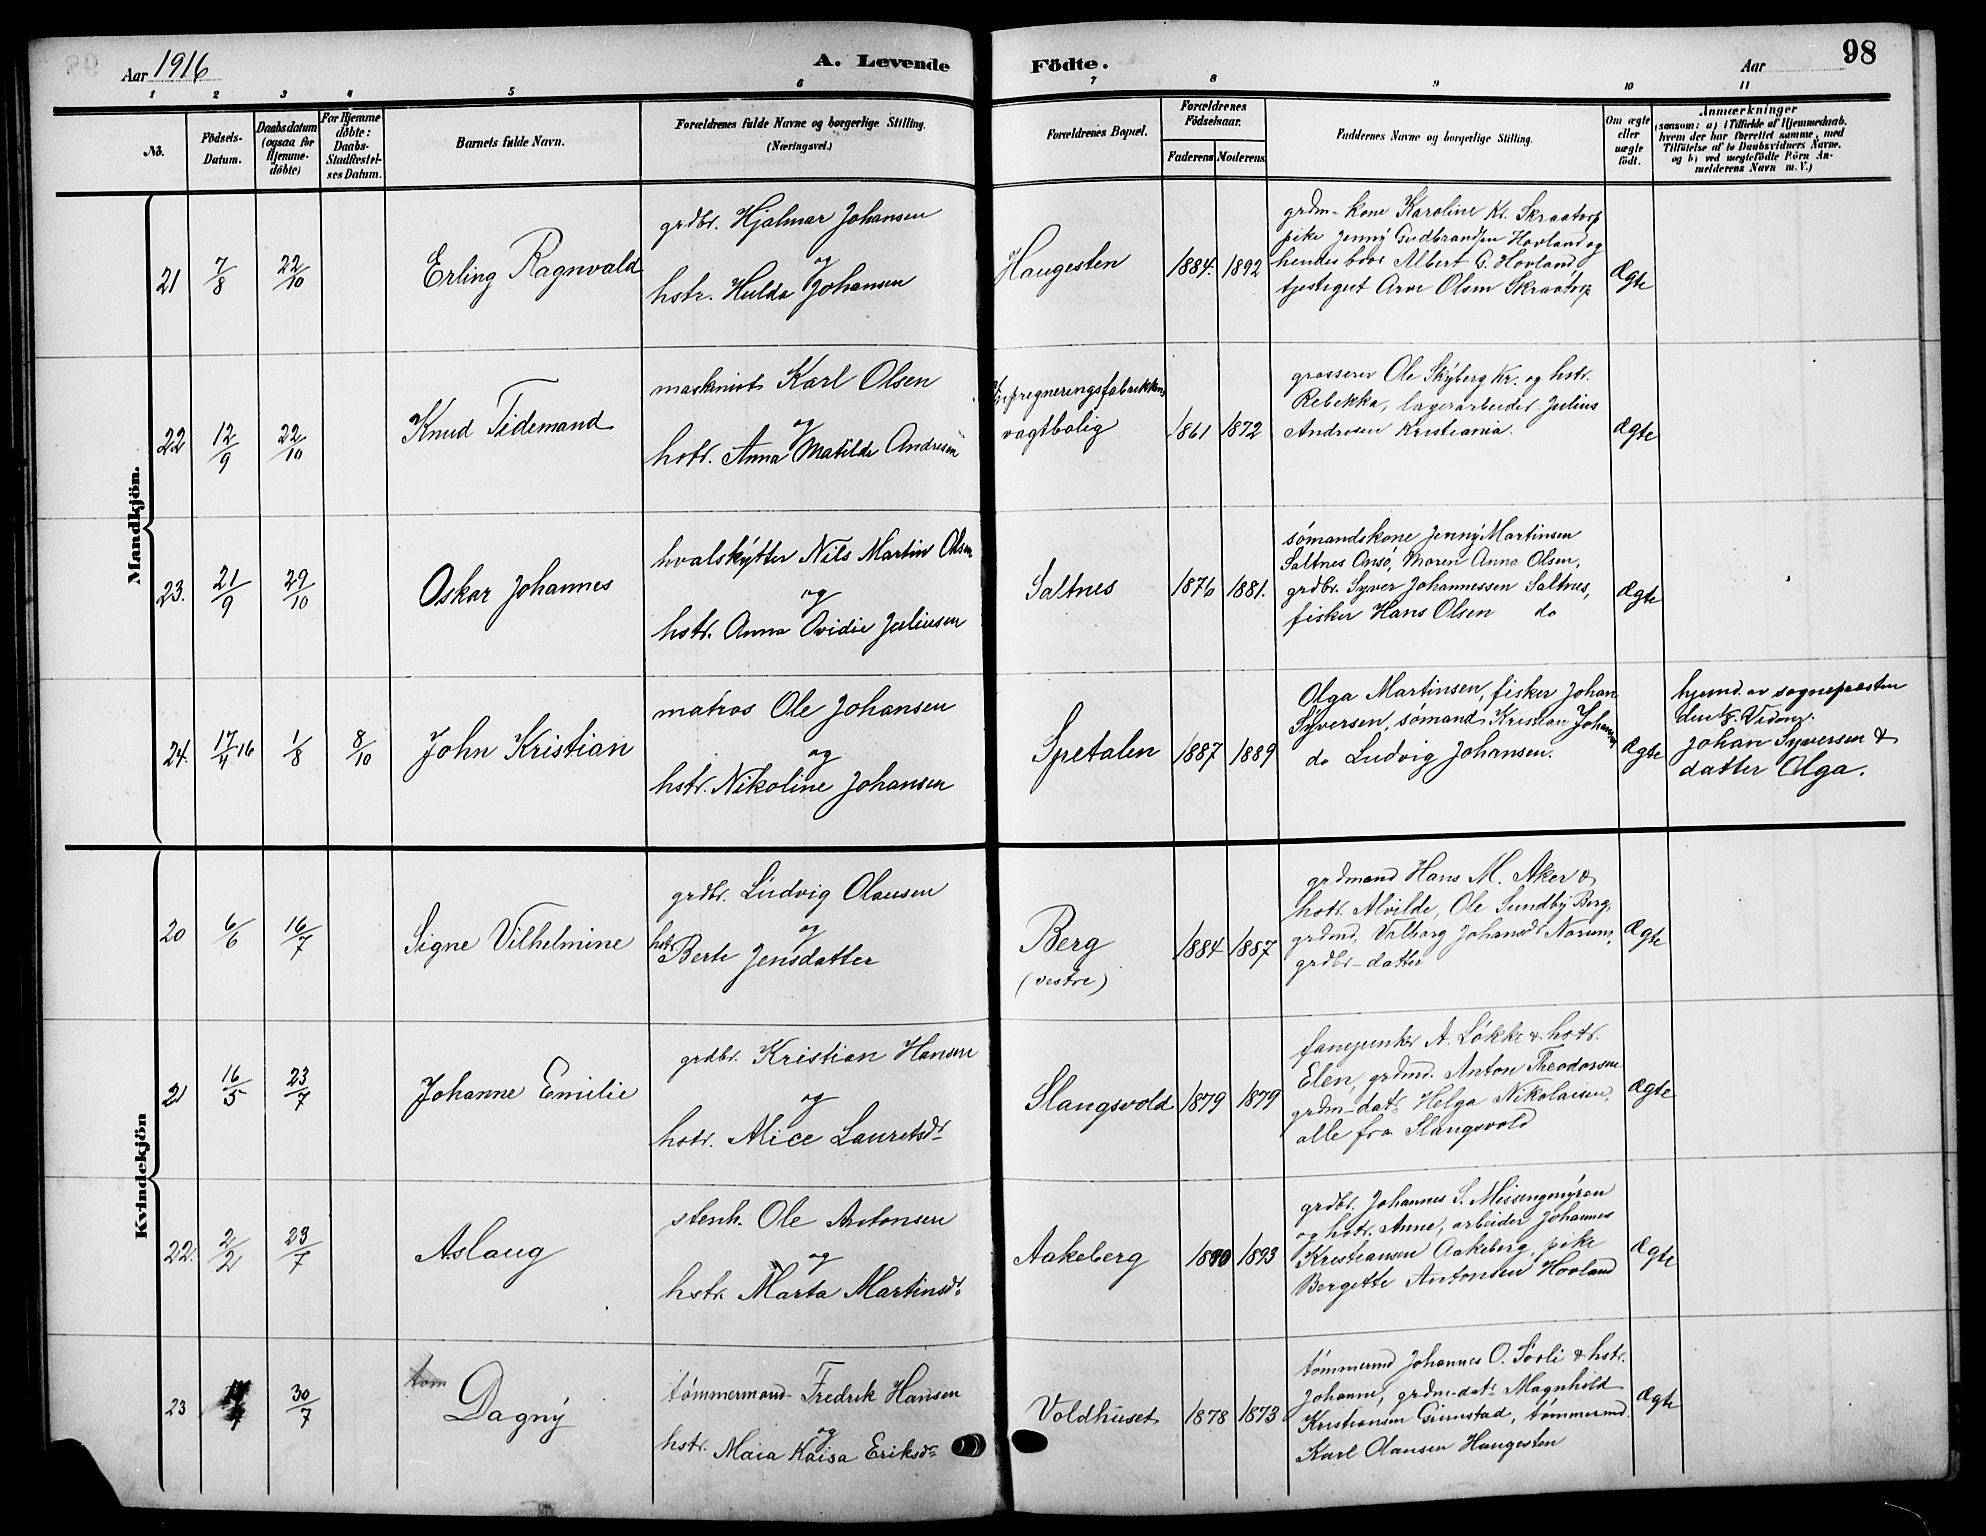 Aar 1916
A. Levende
Födte.
Aar
98
1 2 3 4 5 6 7 8 9 10 11
No.
Födsels-
Datum.
Daabsdatum
(ogsaa for
Hjemme-
döbte)
For Hjemme
döbte:
Daabs-
Stadfæstel-
ses Datum.
Barnets fulde Navn.
Forældrenes fulde Navne og borgerlige Stilling.
(Næringsvei.)
Forældrenes Bopæl.
Forældrenes
Födselsaar.
Faderens Moderens.
Faddernes Navne og borgerlige Stilling.
Om ægte
eller
uægte
födt.
Anmærkninger
(saasom: a) i Tilfælde af Hjemmedaab,
hvem der har forrettet samme, med
Tilföielse af to Daabsvidners Navne.
og b) ved uægtefödte Börn An-
melderens Navn m. V.)
Mandkjön.
21
7/8
22/10
Erling Ragnvald
grdbr. Hjalmar Johansen
og
hstr. Hulda Johansen
Haugesten
1884. 1892
grdm-kone Karoline Kr. Skraatorp
pike Jenny Gudbrandsen Hovland og
hendes bror Albert G. Hovland
tjestegut Arve Olsen Skraatorp
Ægte
22
12/9
22/10
Knud Tidemand
maskinist Karl Olsen
og
hstr. Anna Matilde Andresen
Impregneringsfabrikkens
vagtbolig
1861 1872
grosserer Ole Skyberg Kr. og hstr.
Rebekka, lagerarbeider Julius
Andresen Kristiania.
Ægte
23.
21/9
29/10
Oskar Johannes
hvalskytter Nils Martin Olsen
og
hstr. Anna Ovidie Juliusen
Saltnes
1876 1881.
sømandskone Jenny Martinsen
Saltnes Ansö, Maren Anna Olsen,
grdbr. Syver Johannessen Saltnes,
fisker Hans Olsen do
Ægte
24.
17/4 16
1/8
8/10
John Kristian
matros Ole Johansen
og
hstr. Nikoline Johansen
Spetalen
1887 1889
Olga Martinsen, fisker Johan
Syversen, sømand Kristian Johansen
do Ludvig Johansen.
Ægte
hjemd. av sognepresten
Johan Syversen &
datter Olga.
Kvindekjön
20
6/6
16/7
Signe Vilhelmine
grdbr. Ludvig Olausen
og
hstr. Berte Jensdatter
Berg
(vestre)
1884 1887
grdmand Hans M. Aker &
hstr. Alvilde, Ole Sundby Berg,
grdmd, Valborg Johansdr Norum,
grdbr-datter
Ægte
21
16/5
23/7
Johanne Emilie
grdbr. Kristian Hansen
og
hstr. Alice Lauretsdr
Slangsvold
1879 1879
fanejunker A. Løkke & hstr.
Elen, grdmd. Anton Theodorsen
grdm-datr Helga Nikolaisen,
alle fra Slangsvold
Ægte
22.
2/2
23/7
Aslaug
stenh. Ole Antonsen
og
hstr. Marta Martinsdr
Aakeberg
1890 1893
grdbr. Johannes S. Missengmyren
og hstr. Anne, arbeider Johannes
Kristiansen Aakeberg, pike
Bergette Antonsen Hovland
Ægte
23
30/7
tom
Dagny
tømmermand Fredrik Hansen
og
hstr. Maia Kaisa Eriksdr
Voldhuset
1878 1873
tømmermd Johannes O. Sörli & hstr.
Johanne, grdm-datr Magnhild
Kristiansen Grimstad, tømmermd.
Karl Olausen Haugesten
Ægte